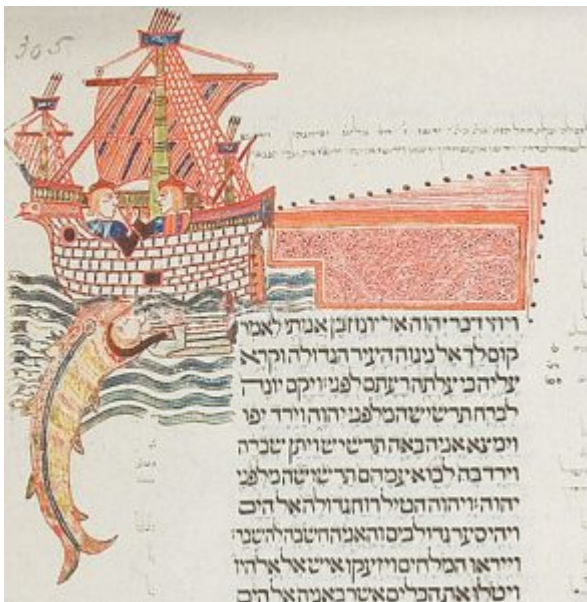 305
ויהי דבר יהוה אל יונה בן אמתי לאמר
קום לך אל נינוה העיר הגדולה וקרא
עליה כי עלתה רעתם לפני ויקם יונה
לברח תרשישה מלפני יהוה וירד יפו
וימצא אניה באה תרשיש ויתן שכרה
וירד בה לבוא עמהם תרשישה מלפני
יהוה׃ ויהוה הטיל רוח גדולה אל הים
ויהי סער גדול בים והאניה חשבה להשבר׃
וייראו המלחים ויזעקו איש אל אלהיו
ויטלו את הכלים אשר באניה אל הים